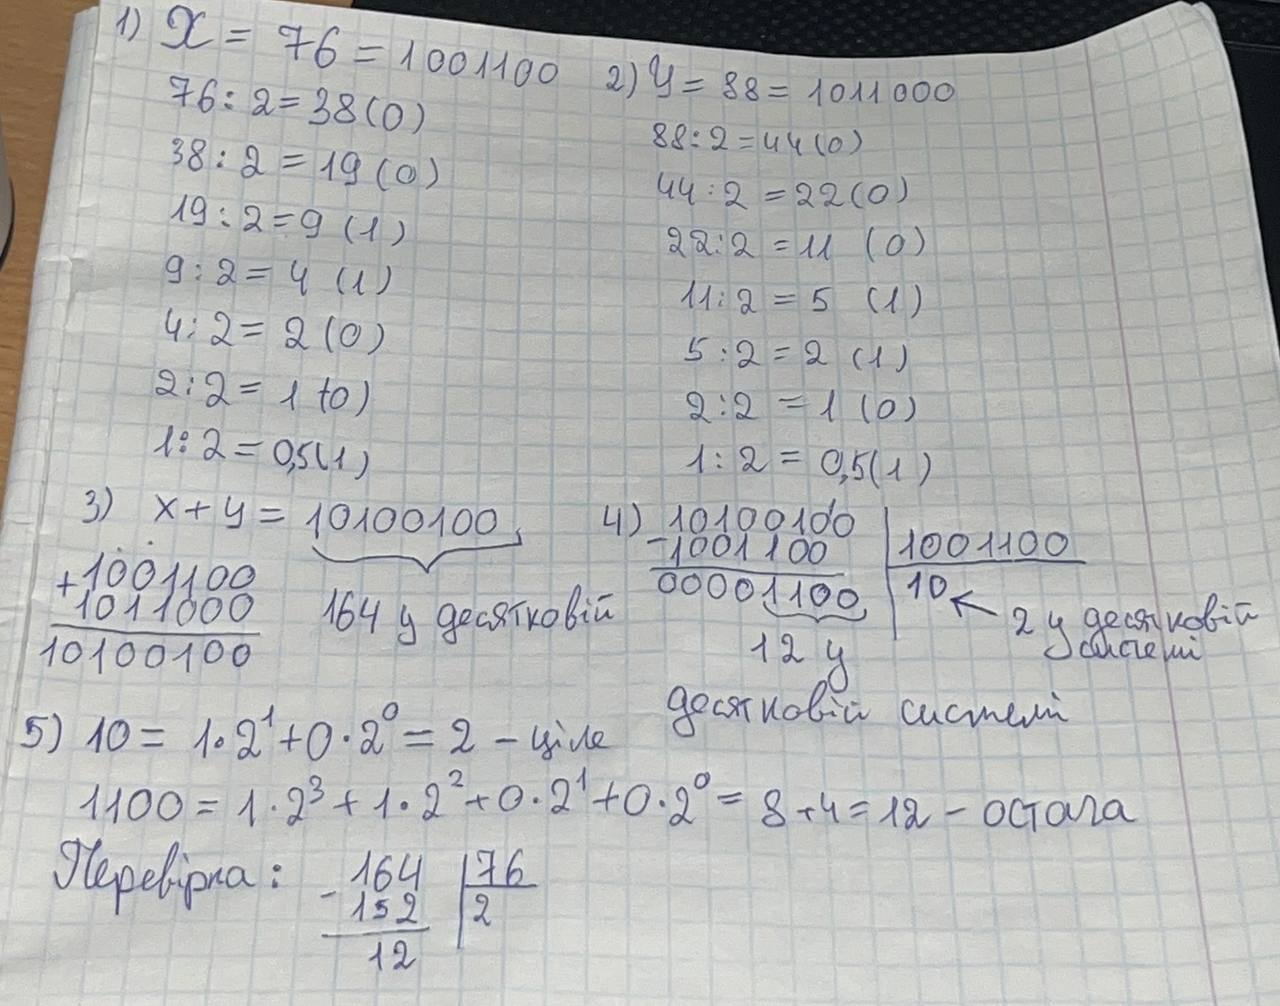 1) X = 76 = 1001100
76 : 2 = 38 (0)
38 : 2 = 19 (0)
19 : 2 = 9 (1)
9 : 2 = 4 (1)
4 : 2 = 2 (0)
2 : 2 = 1 (0)
1 : 2 = 0,5 (1)
2) y = 88 = 1011000
88 : 2 = 44 (0)
44 : 2 = 22 (0)
22 : 2 = 11 (0)
11 : 2 = 5 (1)
5 : 2 = 2 (1)
2 : 2 = 1 (0)
1 : 2 = 0,5 (1)
3) x + y = 10100100
164 у десятковій
+1001100
1011000
10100100
4) 10100100 | 1001100
-1001100 | 10 ← 2 у десятковій системі
00001100
12 у
десятковій системі
5) 10 = 1·2¹ + 0·2⁰ = 2 – ціле
1100 = 1·2³ + 1·2² + 0·2¹ + 0·2⁰ = 8 + 4 = 12 – остача
Перевірка: 164 | 76
- 152 | 2
12